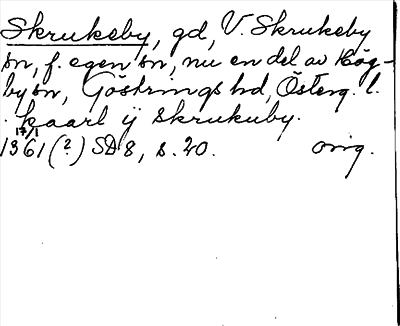 Skrukeby, gd, V. Skrukeby
sn, f. egen sn, nu en del av Hög-
by sn, Göstrings hd, Österg. l.
. kaarl ij skrukuby.
17/1
1361 (?) SD 8, s. 20. orig.